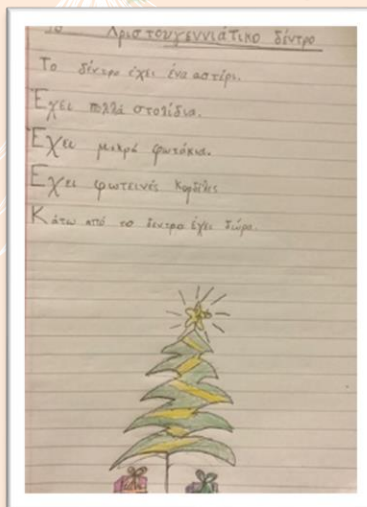 Το Χριστουγεννιάτικο δέντρο
Το δέντρο έχει ένα αστέρι.
Έχει πολλά στολίδια.
Έχει μικρά φωτάκια.
Έχει φωτεινές κορδέλες
Κάτω από το δεντρο έχει δώρα.